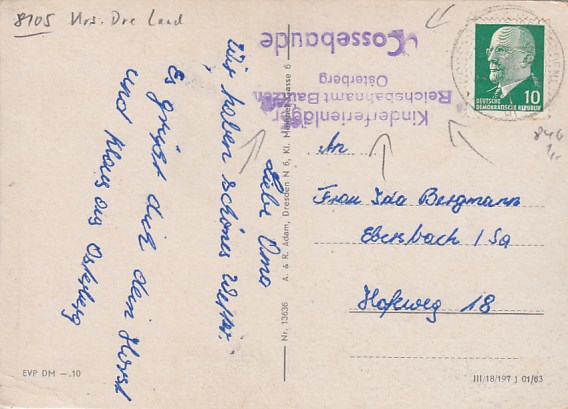 8105 Krs. Dre Land
Liebe Oma
Wir haben schönes Wetter.
Es grüßt dich dein Horst
und Klaus aus Osterberg
EVP DM —.10
Nr. 13636 A. & R. Adam, Dresden N 6, Kl. Marienstrasse 6
Kinderferienlager
Reichsbahnamt Bautzen
Osterberg
Cossebaude
DEUTSCHE
DEMOKRATISCHE REPUBLIK
10
846
1,-
An
Frau Ida Bergmann
Ebersbach / Sa
Hofeweg 18
III/18/197 J 01/63